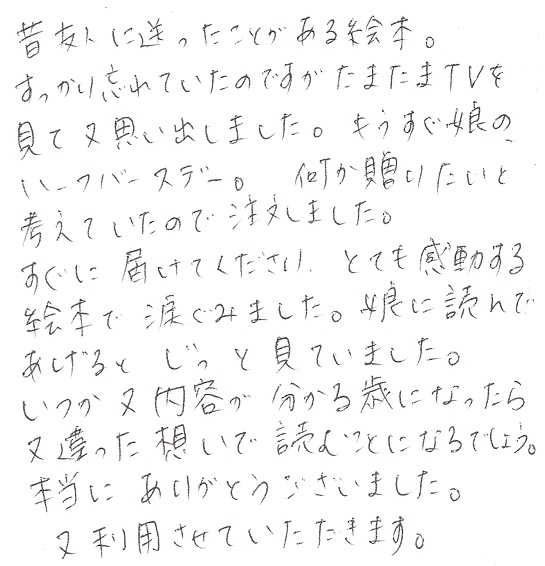 昔友人に送ったことがある絵本。
すっかり忘れていたのですがたまたまTVを
見て又思い出しました。もうすぐ娘の
ハーフバースデー。何か贈りたいと
考えていたので注文しました。
すぐに届けてくださり、とても感動する
絵本で涙ぐみました。娘に読んで
あげるとじっと見ていました。
いつか又内容が分かる歳になったら
又違った想いで読むことになるでしょう。
本当にありがとうございました。
又利用させていただきます。